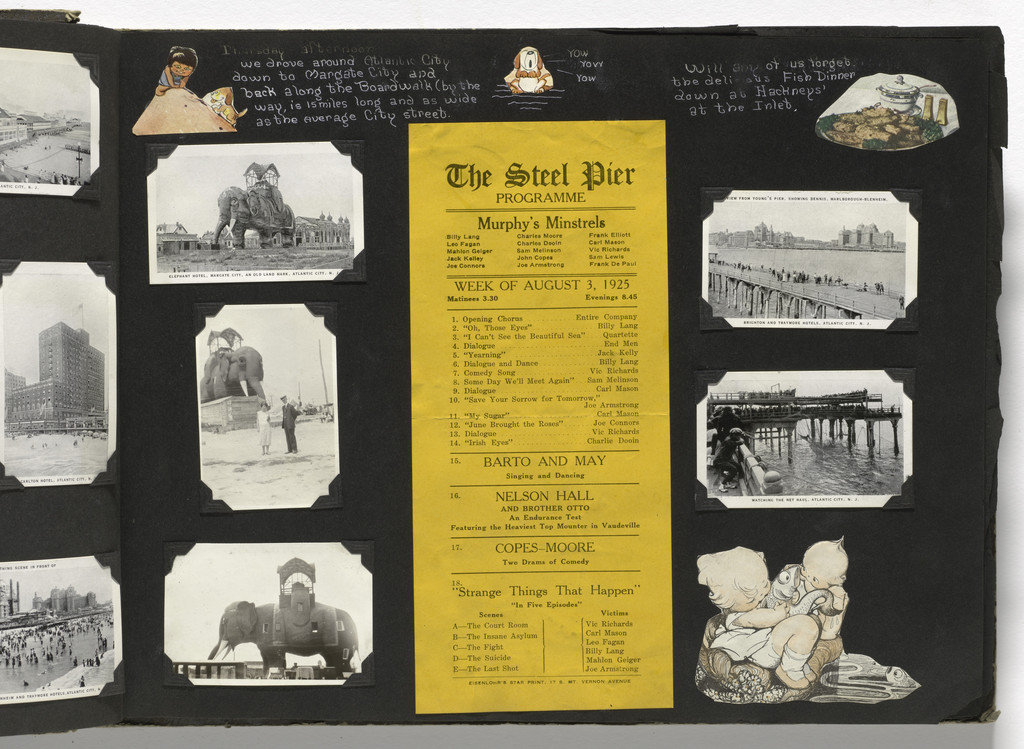 Thursday afternoon
we drove around Atlantic City
down to Margate City and
back along the Boardwalk (by the
way, is 15 miles long and as wide
as the average City street.
YOW
YOW
YOW
Will any of us forget
the delicious Fish Dinner
down at Hackneys'
at the Inlet.
ANTIC CITY, N. J.
ELEPHANT HOTEL, MARGATE CITY, AN OLD LAND MARK, ATLANTIC CITY, N. J.
The Steel Pier
PROGRAMME
Murphy's Minstrels
Billy Lang Charles Moore Frank Elliott
Leo Fagan Charles Dooin Carl Mason
Mahlon Geiger Sam Melinson Vic Richards
Jack Kelley John Copes Sam Lewis
Joe Connors Joe Armstrong Frank De Paul
WEEK OF AUGUST 3, 1925
Matinees 3.30 Evenings 8.45
1. Opening Chorus Entire Company
2. "Oh, Those Eyes" Billy Lang
3. "I Can't See the Beautiful Sea" Quartette
4. Dialogue End Men
5. "Yearning" Jack Kelly
6. Dialogue and Dance Billy Lang
7. Comedy Song Vic Richards
8. Some Day We'll Meet Again" Sam Melinson
9. Dialogue Carl Mason
10. "Save Your Sorrow for Tomorrow,"
Joe Armstrong
11. "My Sugar" Carl Mason
12. "June Brought the Roses" Joe Connors
13. Dialogue Vic Richards
14. "Irish Eyes" Charlie Dooin
15. BARTO AND MAY
Singing and Dancing
16. NELSON HALL
AND BROTHER OTTO
An Endurance Test
Featuring the Heaviest Top Mounter in Vaudeville
17. COPES-MOORE
Two Drams of Comedy
18.
"Strange Things That Happen"
"In Five Episodes"
Scenes Victims
A—The Court Room Vic Richards
B—The Insane Asylum Carl Mason
C—The Fight Leo Fagan
D—The Suicide Billy Lang
E—The Last Shot Mahlon Geiger
Joe Armstrong
EISENLOHR'S STAR PRINT, 17 S. MT. VERNON AVENUE
VIEW FROM YOUNG'S PIER, SHOWING DENNIS, MARLBOROUGH-BLENHEIM,
BRIGHTON AND TRAYMORE HOTELS, ATLANTIC CITY, N. J.
WATCHING THE NET HAUL, ATLANTIC CITY, N. J.
HOTEL, ATLANTIC CITY, N. J.
SCENE IN FRONT OF
AND TRAYMORE HOTELS, ATLANTIC CITY, N. J.